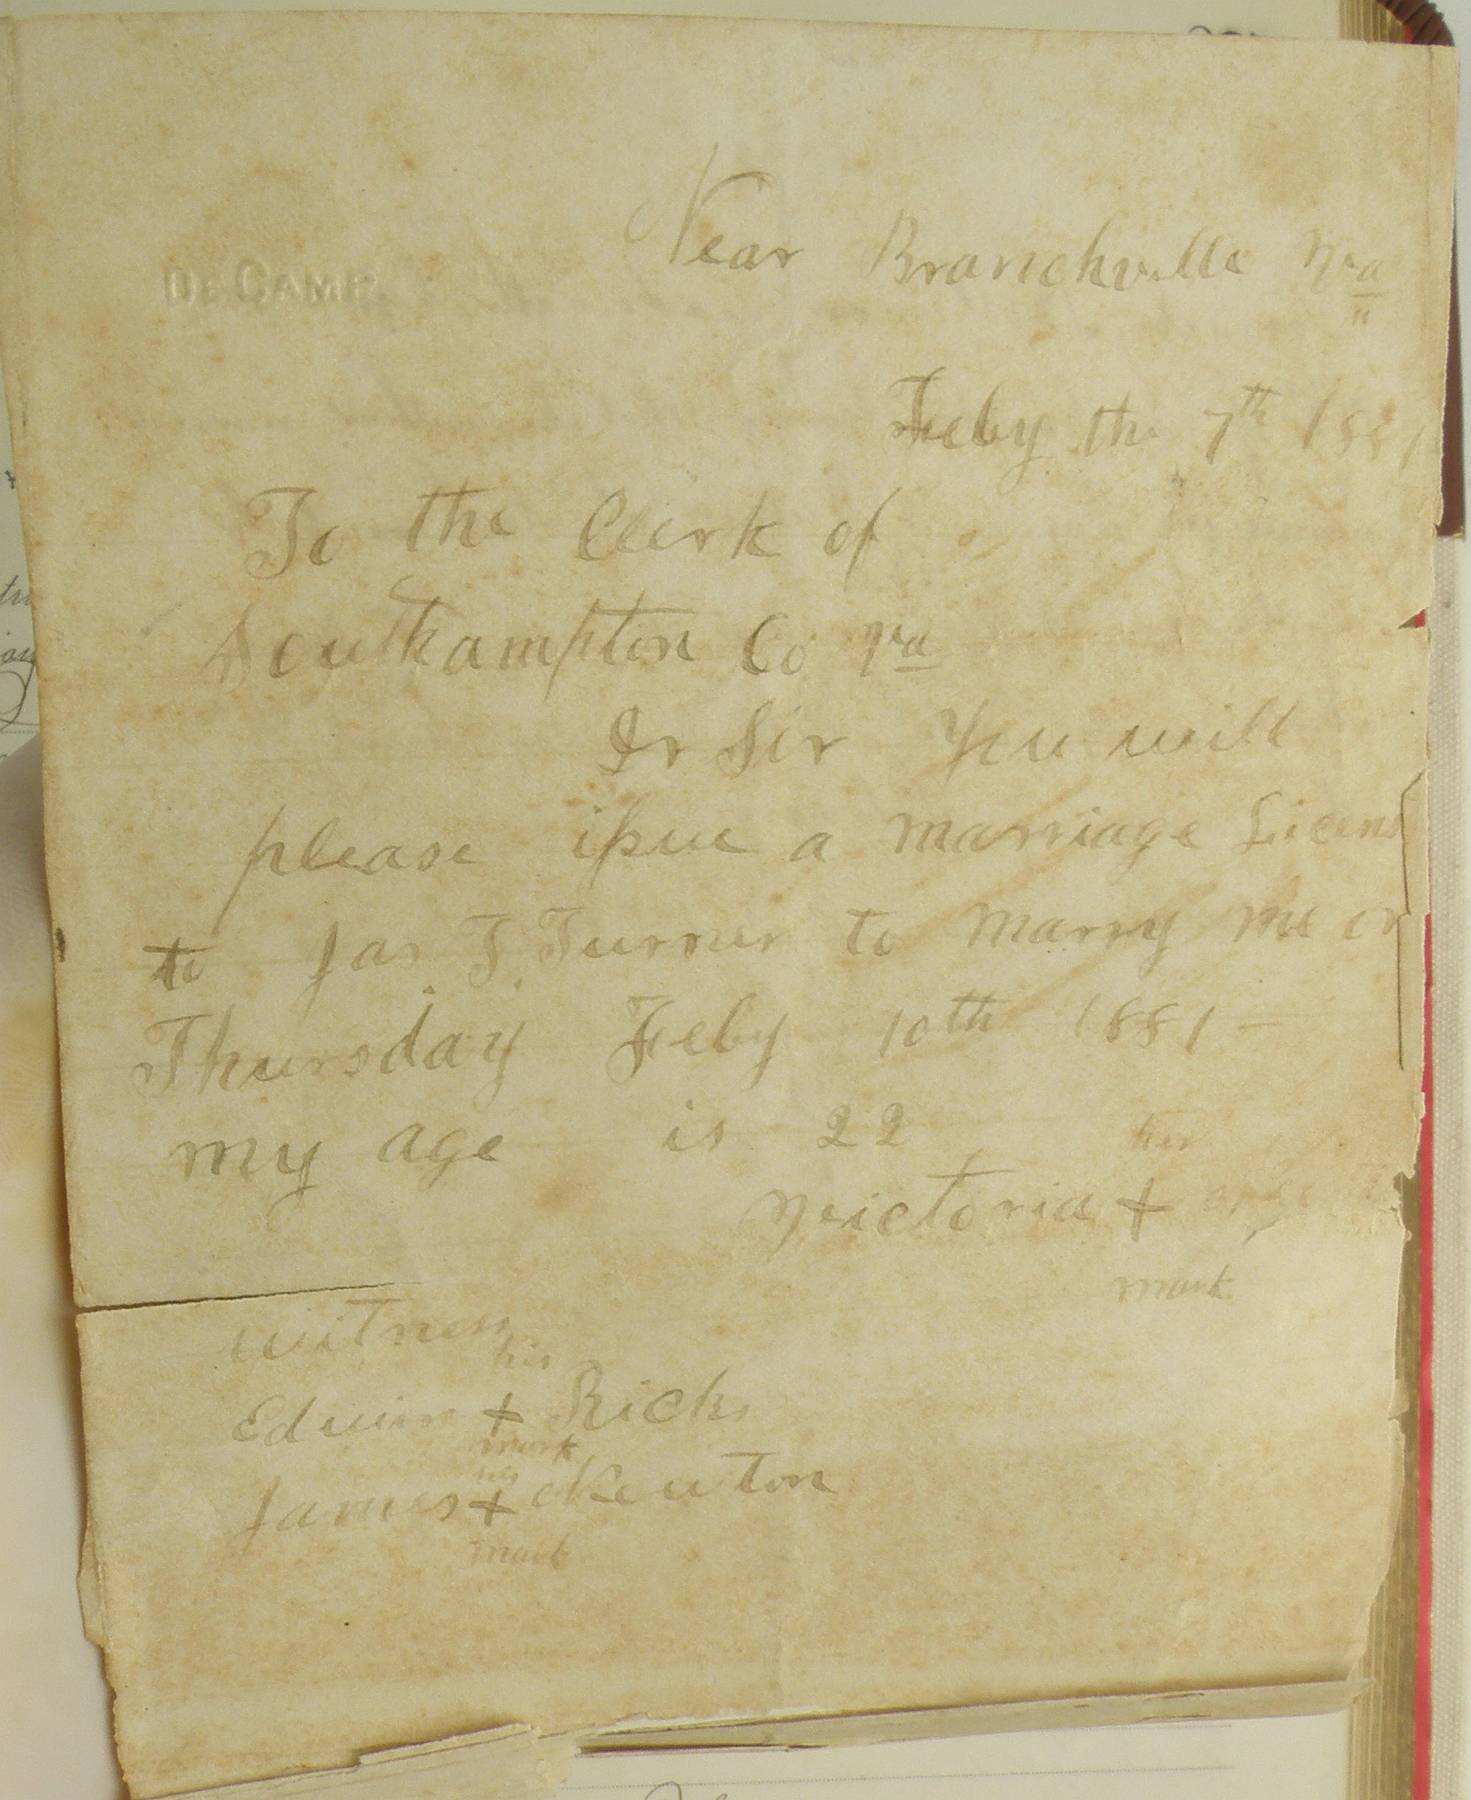 De Camp.
Near Branchville Va
Feby the 7th 1881
To the Clerk of
Southampton Co Va
Dr Sir You will
please issue a marriage Licens
to Jas T. Turner to marry me on
Thursday Feby 10th 1881 –
my age is 22
her
Victoria +
mark
witness
his
Edwin + Ricks
mark
his
James + Newton
mark